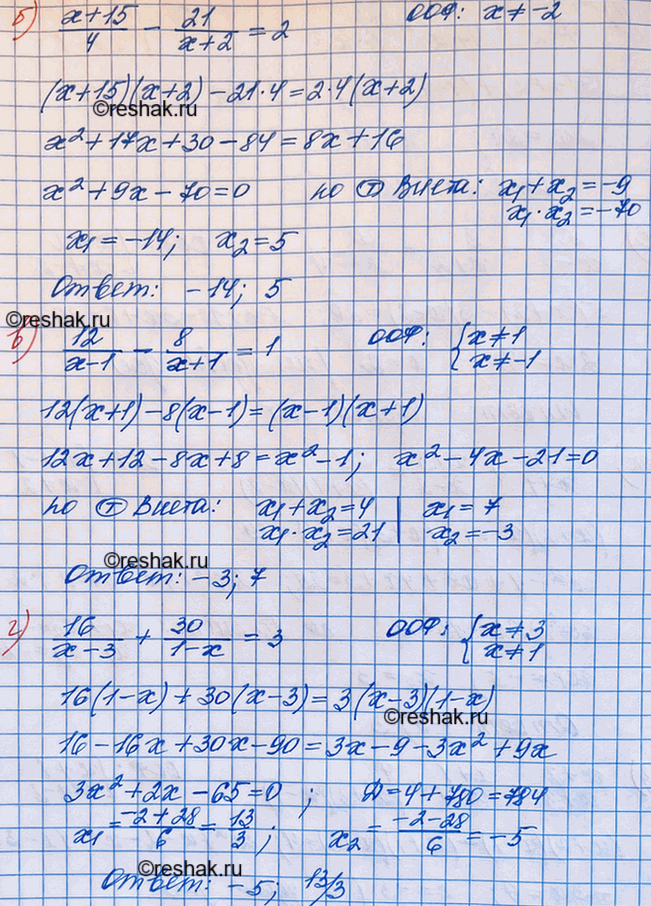 б) (x+15)/4 − 21/(x+2) = 2   ООФ: x≠−2
(x+15)(x+2)−21·4=2·4(x+2)
©reshak.ru
x²+17x+30−84=8x+16
x²+9x−70=0   по Ⓣ Виета: x₁+x₂=−9
x₁·x₂=−70
x₁=−14; x₂=5
Ответ: −14; 5
©reshak.ru
в) 12/(x−1) − 8/(x+1) = 1   ООФ: {x≠1
x≠−1
12(x+1)−8(x−1)=(x−1)(x+1)
12x+12−8x+8=x²−1; x²−4x−21=0
по Ⓣ Виета: x₁+x₂=4 | x₁=7
x₁·x₂=21 | x₂=−3
©reshak.ru
Ответ: −3; 7
г) 16/(x−3) + 30/(1−x) = 3   ООФ: {x≠3
x≠1
16(1−x)+30(x−3)=3(x−3)(1−x)
©reshak.ru
16−16x+30x−90=3x−9−3x²+9x
3x²+2x−65=0; D=4+780=784
x₁=(−2+28)/6=13/3; x₂=(−2−28)/6=−5
©reshak.ru
Ответ: −5; 13/3